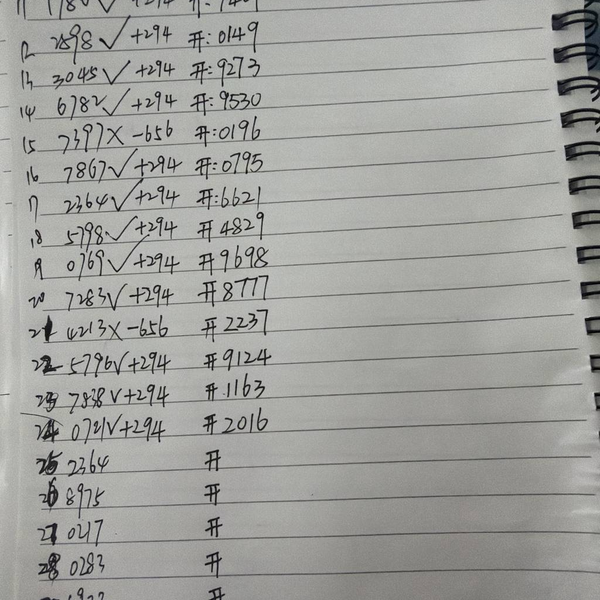 12 2898 ✓ +294 开: 0149
13 3045 ✓ +294 开: 9273
14 6782 ✓ +294 开: 9530
15 7397 X -656 开: 0196
16 7867 ✓ +294 开: 0795
17 2364 ✓ +294 开: 6621
18 5798 ✓ +294 开 4829
19 0769 ✓ +294 开 9698
20 7283 ✓ +294 开 8777
21 4213 X -656 开 2237
22 5796 ✓ +294 开 9124
23 7838 ✓ +294 开 1163
24 0721 ✓ +294 开 2016
25 2364 开
26 8975 开
27 0217 开
28 0283 开
开